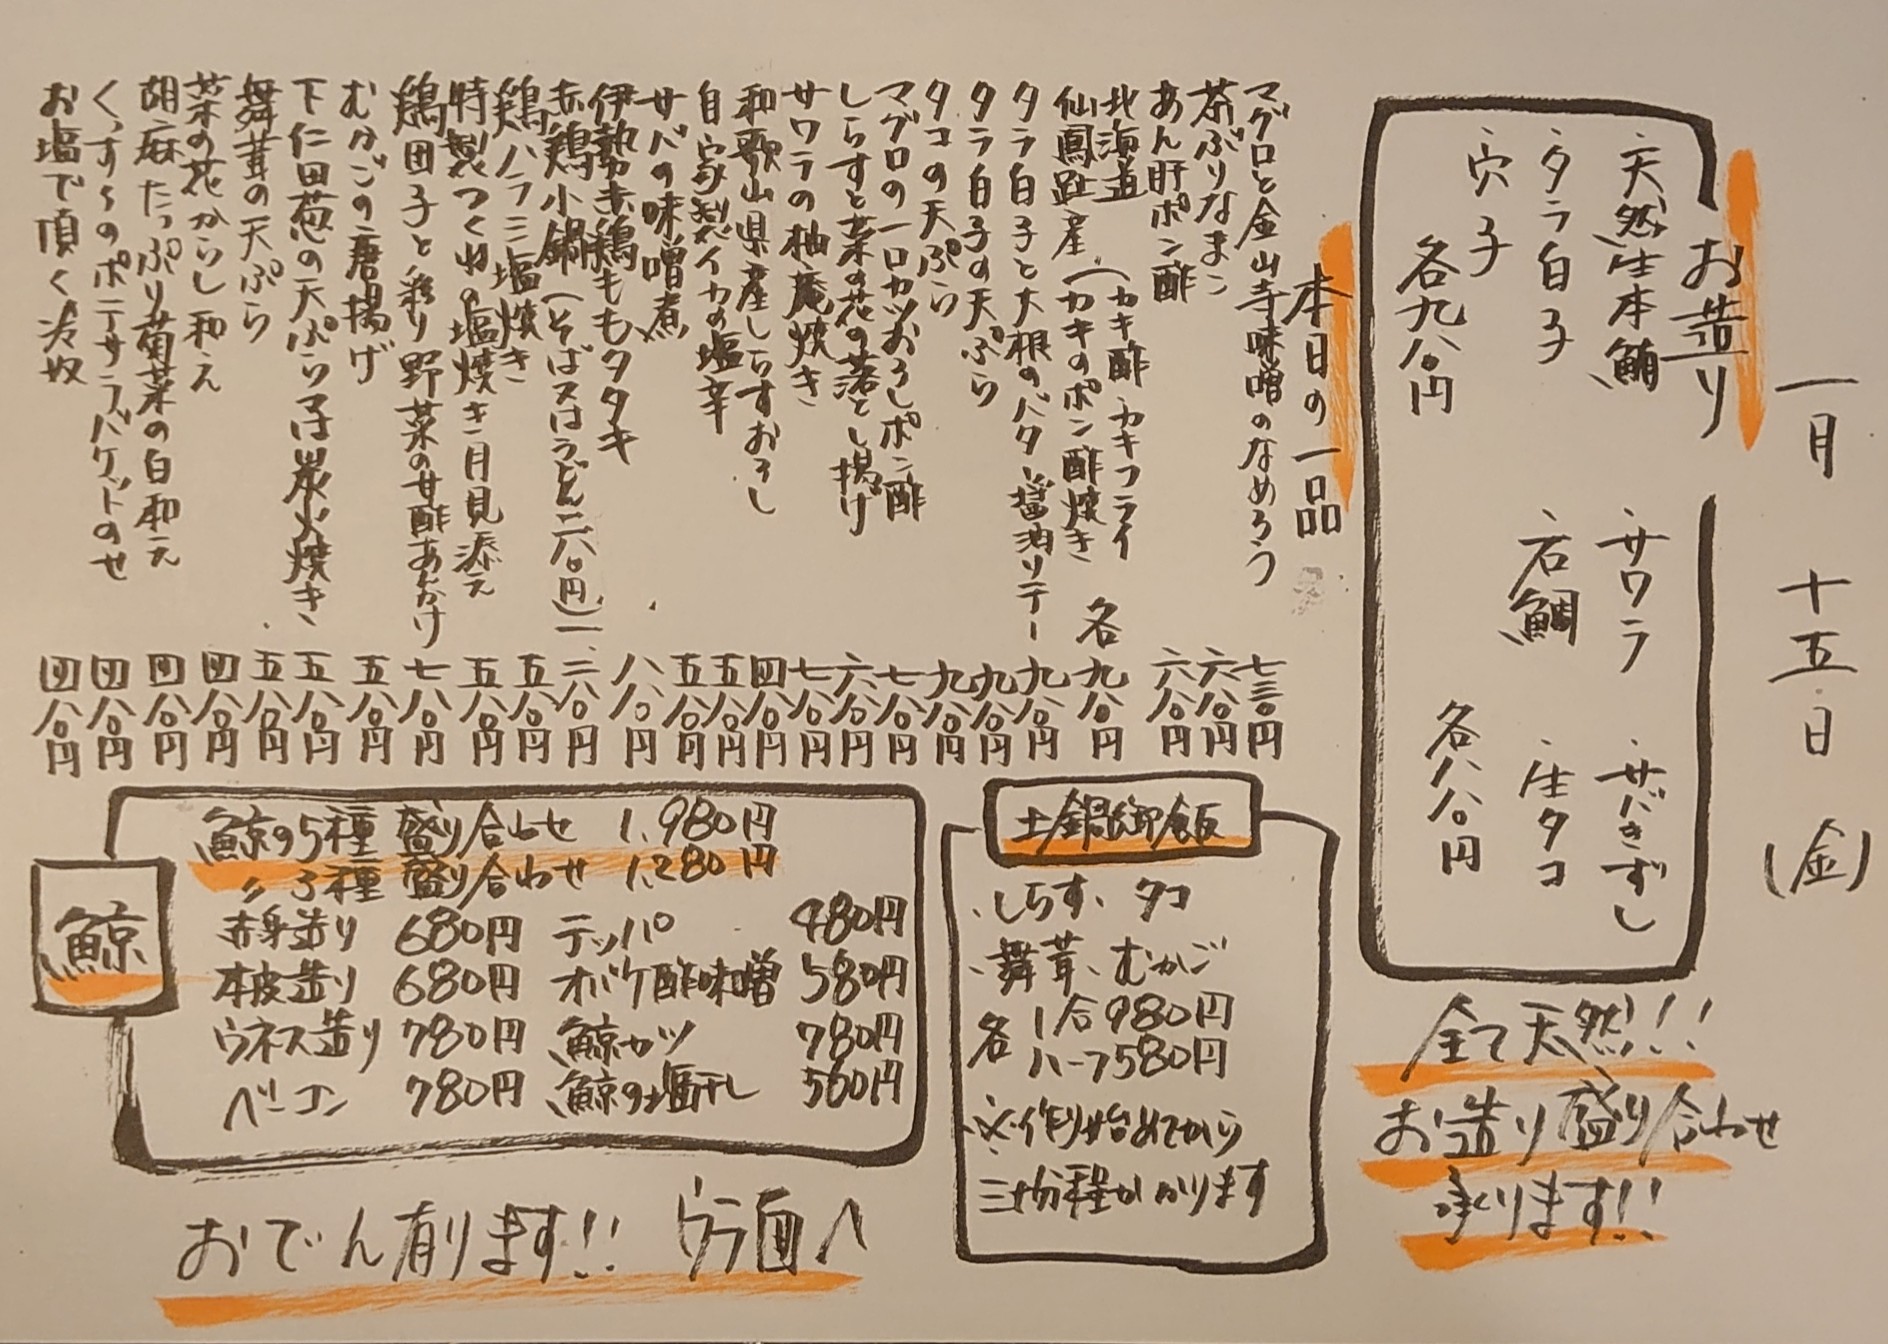 一月 十五日 (金)
お造り
天然生本鮪 サワラ サバきずし
タラ白子 石鯛 生タコ
穴子
各九八〇円 各八八〇円
全て天然!!
お造り盛り合わせ
承ります!!
本日の一品
マグロと金山寺味噌のなめろう 七三〇円
茶ぶりなまこ 六八〇円
あん肝ポン酢 六八〇円
北海道 (カキ酢 カキフライ
仙鳳趾産 (カキのポン酢焼き 各九八〇円
タラ白子と大根のバター醤油ソテー 九八〇円
タラ白子の天ぷら 九八〇円
タコの天ぷら 九八〇円
マグロの一口カツおろしポン酢 七八〇円
しらすと菜の花の落とし揚げ 六八〇円
サワラの柚庵焼き 七八〇円
和歌山県産しらすおろし 四八〇円
自家製イカの塩辛 五八〇円
サバの味噌煮 五八〇円
伊勢赤鶏ももタタキ 八八〇円
赤鶏小鍋(そば又はうどん二八〇円) 一、二八〇円
鶏ハラミ塩焼き 五八〇円
特製つくねの塩焼き月見添え 五八〇円
鶏団子と彩り野菜の甘酢あんかけ 七八〇円
むかごの唐揚げ 五八〇円
下仁田葱の天ぷら又は炭火焼き 五八〇円
舞茸の天ぷら 五八〇円
菜の花からし和え 四八〇円
胡麻たっぷり菊菜の白和え 四八〇円
くっすんのポテサラバケットのせ 四八〇円
お塩で頂く冷奴 四八〇円
土鍋御飯
、しらす、タコ
、舞茸、むかご
各 1合980円
ハーフ580円
※作り始めてから
三十分程かかります
鯨
鯨の5種盛り合わせ 1,980円
〃 3種盛り合わせ 1,280円
赤身造り 680円 テッパ 480円
本皮造り 680円 オバケ酢味噌 580円
ウネス造り 780円 鯨カツ 780円
ベーコン 780円 鯨の塩干し 500円
おでん有ります!! ウラ面へ